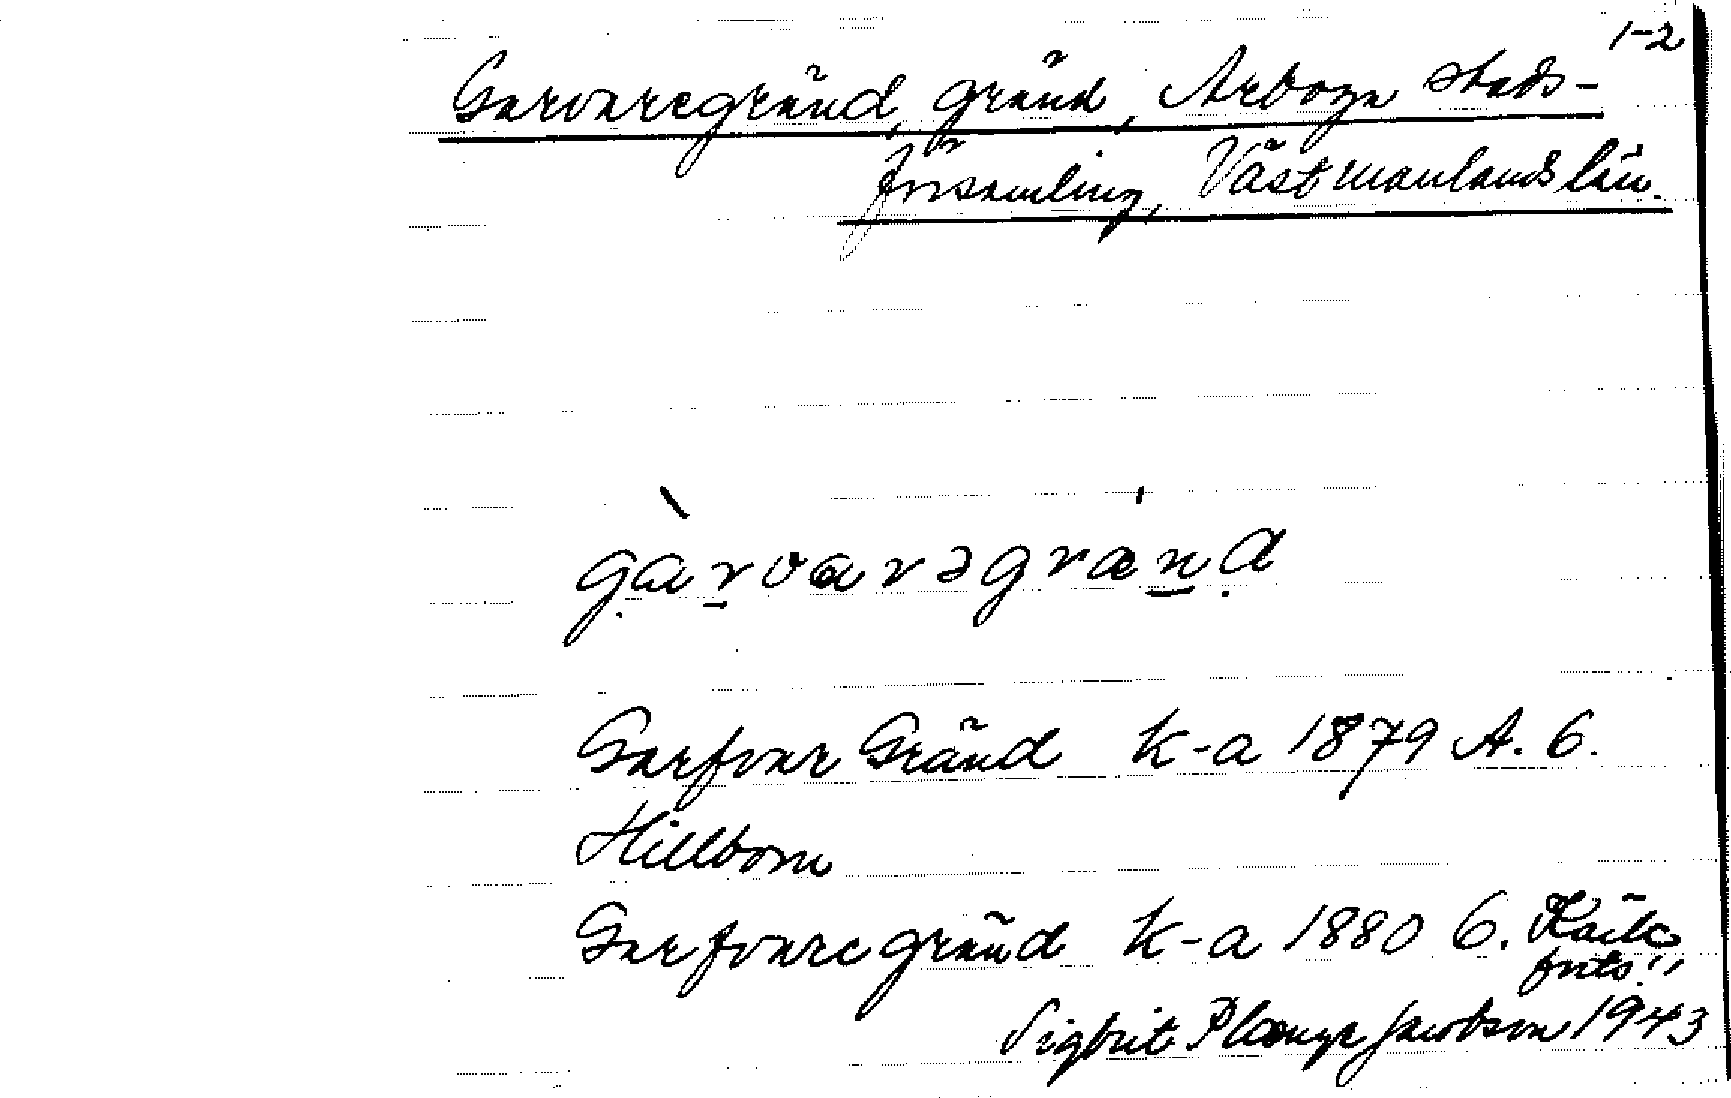 1-2
Garvaregränd, gränd, Arboga stads-
församling, Västmanlands län.
gàrvarəgrænd
Garfvar Gränd k-a 1879 A. 6.
Hillbom
Garfvaregränd k-a 1880 6.
forts.
Sigbrit Plænge Jacobson 1943